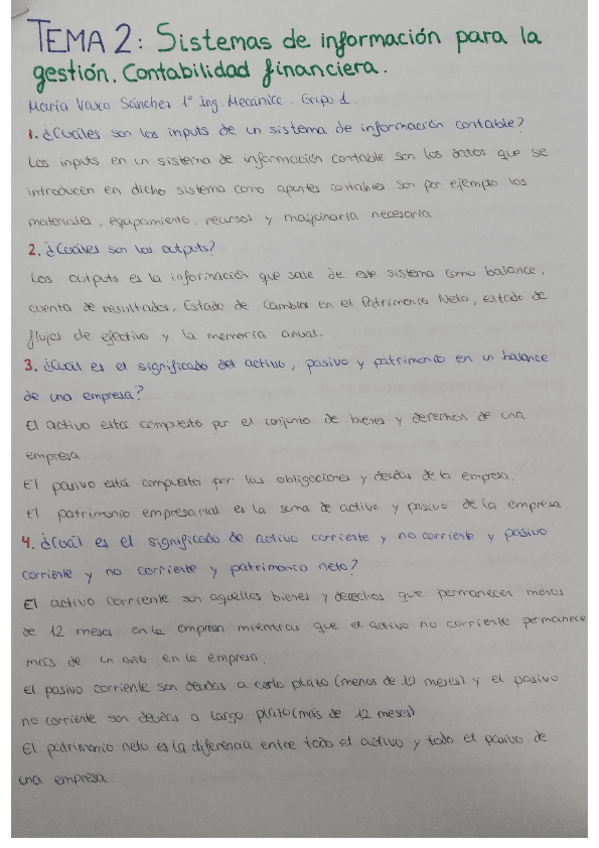 TEMA 2: Sistemas de información para la
gestión. Contabilidad financiera.
María Vaxo Sánchez 1º Ing. Mecánica. Grupo 1.
1. ¿Cuáles son los inputs de un sistema de información contable?
Los inputs en un sistema de información contable son los datos que se
introducen en dicho sistema como apuntes contables. Son por ejemplo los
materiales, equipamiento, recursos y maquinaria necesaria.
2. ¿Cuáles son los outputs?
Los outputs es la información que sale de este sistema como balance,
cuenta de resultados, Estado de Cambios en el Patrimonio Neto, estado de
flujos de efectivo y la memoria anual.
3. ¿Cuál es el significado del activo, pasivo y patrimonio en un balance
de una empresa?
El activo está compuesto por el conjunto de bienes y derechos de una
empresa.
El pasivo está compuesto por las obligaciones y deudas de la empresa.
El patrimonio empresarial es la suma de activo y pasivo de la empresa.
4. ¿Cuál es el significado de activo corriente y no corriente y pasivo
corriente y no corriente y patrimonio neto?
El activo corriente son aquellos bienes y derechos que permanecen menos
de 12 meses en la empresa mientras que el activo no corriente permanece
más de un año en la empresa.
El pasivo corriente son deudas a corto plazo (menos de 12 meses) y el pasivo
no corriente son deudas a largo plazo (más de 12 meses)
El patrimonio neto es la diferencia entre todo el activo y todo el pasivo de
una empresa.